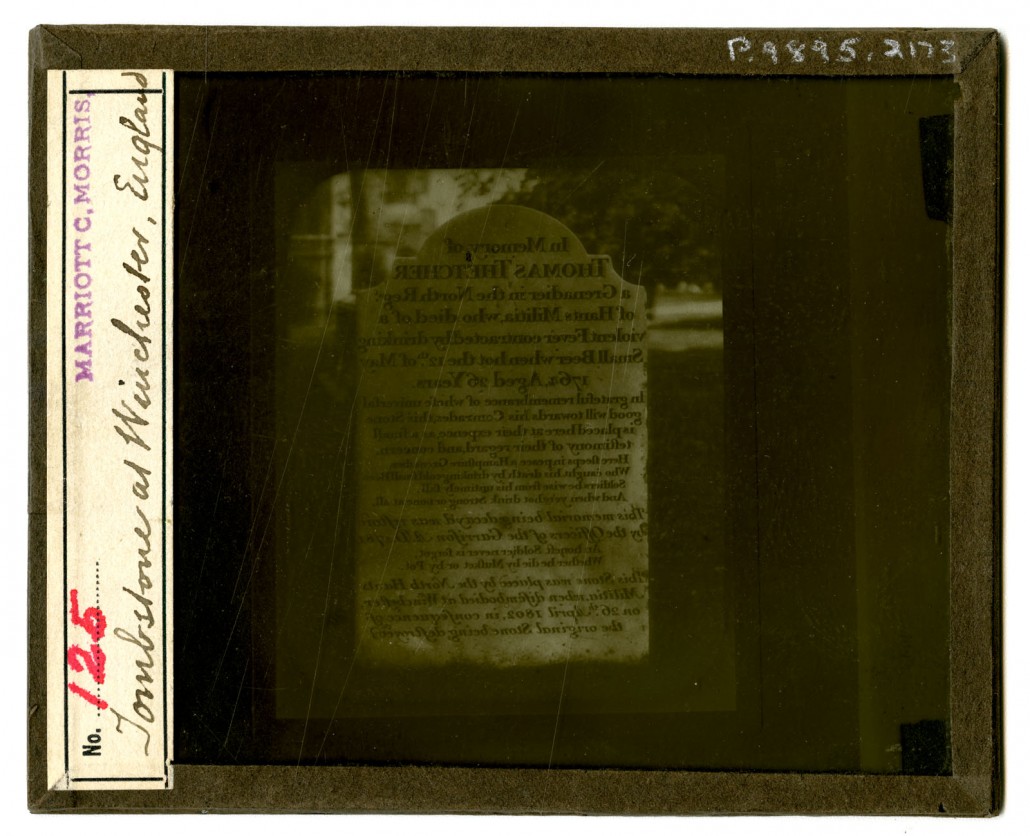 P.9895.2173
MARRIOTT C. MORRIS,
No. 125
Tombstone at Winchester, England
In Memory of
THOMAS THETCHER
a Grenadier in the North Reg.
of Hants Militia, who died of a
violent Fever contracted by drinking
Small Beer when hot the 12th of May
1764. Aged 26 Years.
In grateful remembrance of whose universal
good will towards his Comrades, this Stone
is placed here at their expence, as a small
testimony of their regard and concern.
Here sleeps in peace a Hampshire Grenadier,
Who caught his death by drinking cold small Beer,
Soldiers be wise from his untimely fall
And when ye're hot drink Strong or none at all.
This memorial being decay'd was restor'd
by the Officers of the Garrison A.D. 1781.
An honest Soldier never is forgot
Whether he die by Musket or by Pot.
This Stone was placed by the North Hants
Militia, when disembodied at Winchester,
on 26th April 1802, in consequence of
the original Stone being destroyed